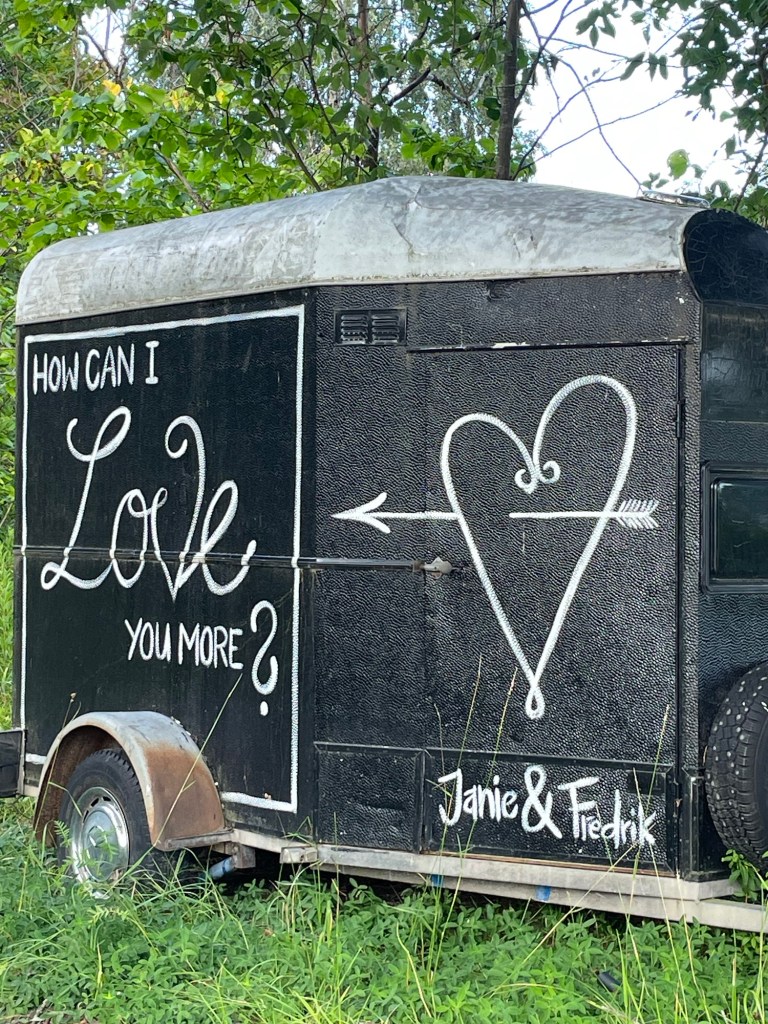 HOW CAN I
Love
YOU MORE?
Janie & Fredrik